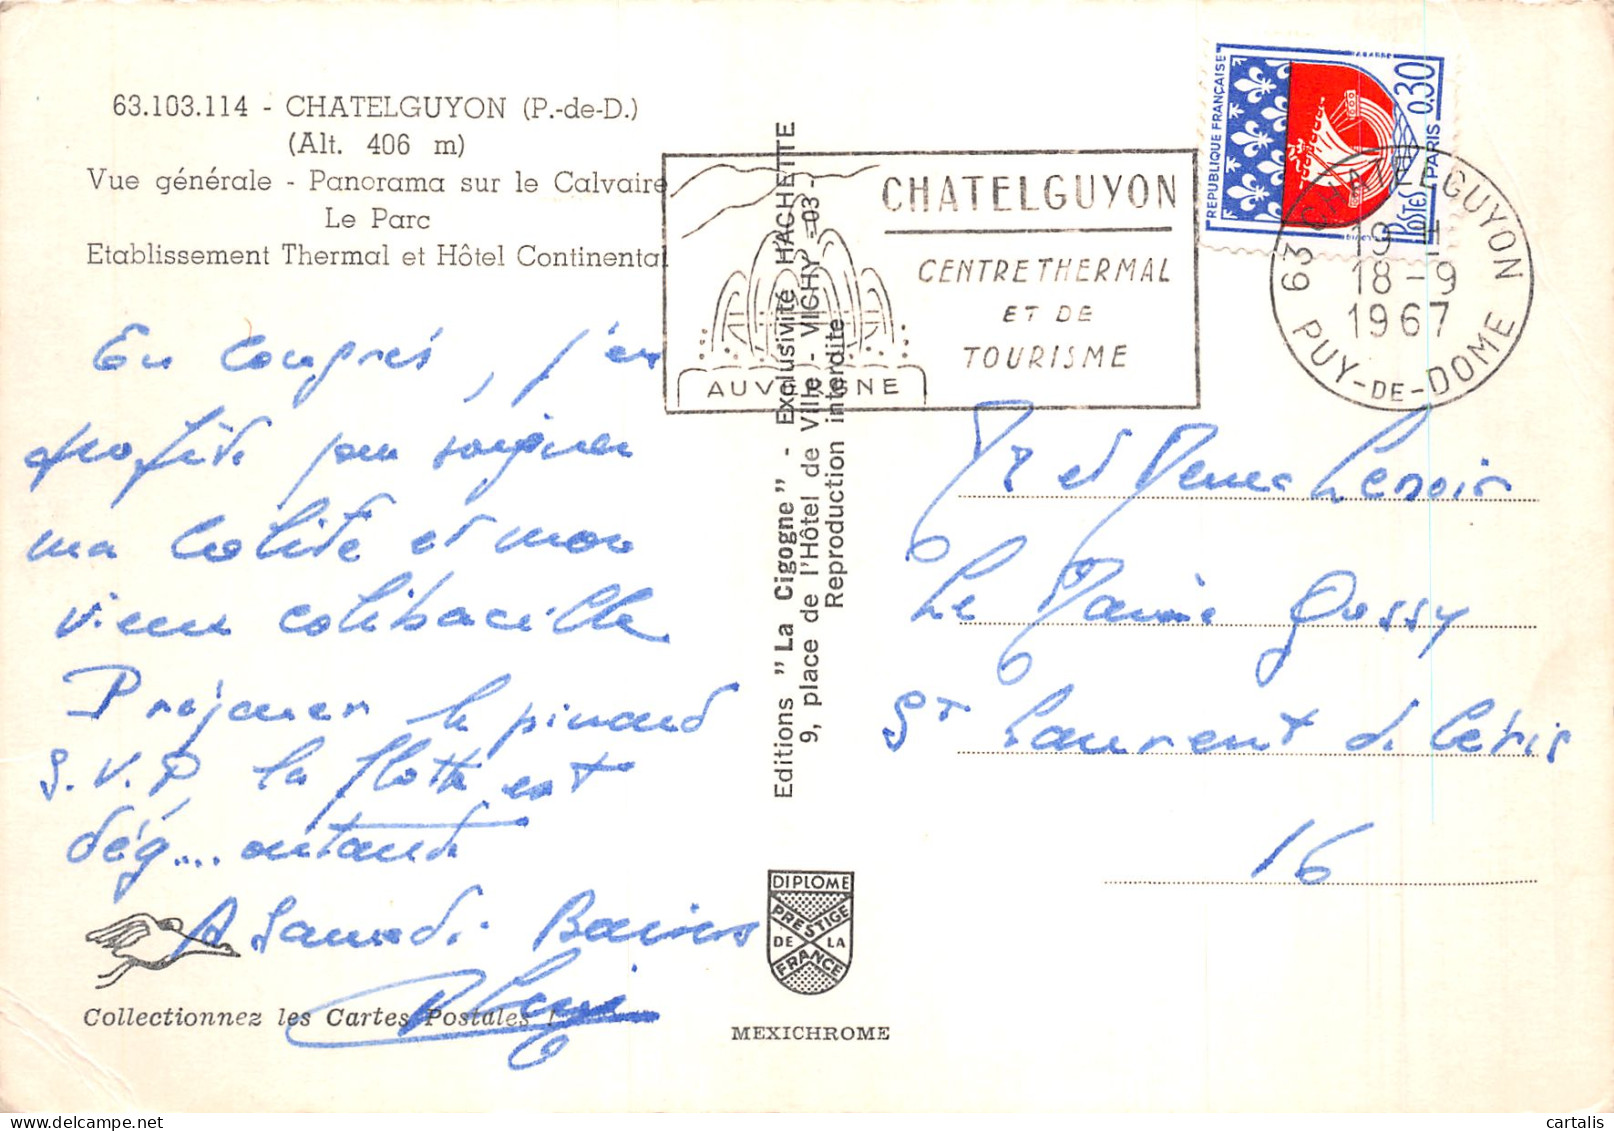 63.103.114 - CHATELGUYON (P.-de-D.)
(Alt. 406 m)
Vue générale - Panorama sur le Calvaire
Le Parc
Etablissement Thermal et Hôtel Continental
En Congrés, j'en
profite pour soigner
ma colite et mon
vieux colibacille
Préparer le pinard
S.V.P la flotte est
dég... outante
A Samedi. Baisers
Collectionnez les Cartes Postales !
Editions "La Cigogne" - Exclusivité HACHETTE
9, place de l'Hôtel de Ville - VICHY - 03 -
Reproduction interdite
DIPLOME
PRESTIGE
DE LA
FRANCE
MEXICHROME
CHATELGUYON
CENTRE THERMAL
ET DE
TOURISME
AUVERGNE
REPUBLIQUE FRANÇAISE
POSTES PARIS 0,30
63 CHATELGUYON
19 H
18-9
1967
PUY-DE-DOME
Mr et Mme Lenoir
Le Maine Gussy
St Laurent de Céris
16
cartalis